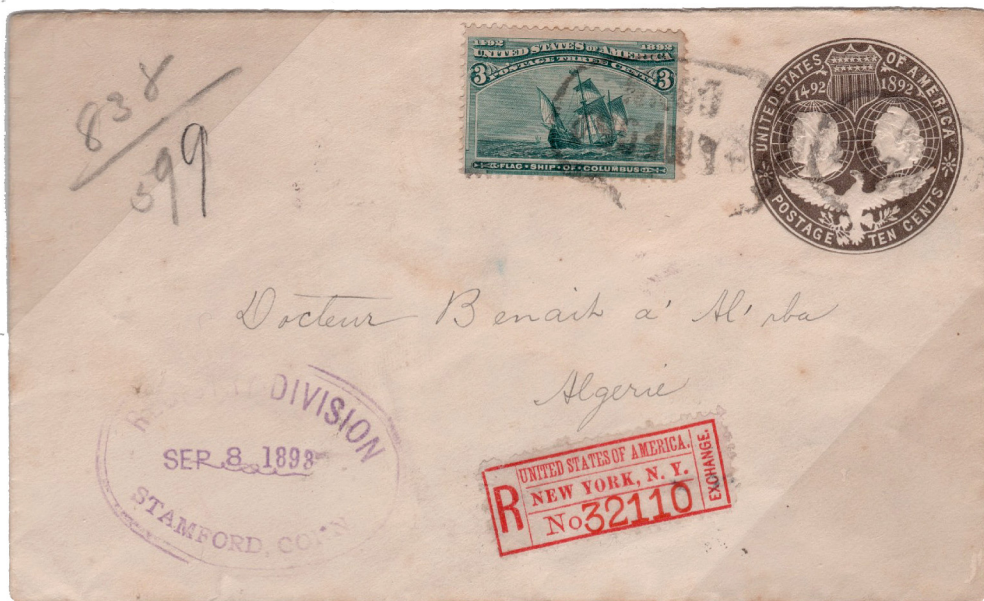 838
599
1492 1892
UNITED STATES OF AMERICA
POSTAGE THREE CENTS
3 3
FLAG·SHIP·OF·COLUMBUS
UNITED STATES OF AMERICA
1492 1892
POSTAGE TEN CENTS
Docteur Benait a' Al' rba
Algerie
DIVISION
SEP 8 1893
STAMFORD, CONN
UNITED STATES OF AMERICA.
R NEW YORK, N. Y. EXCHANGE.
No 32110